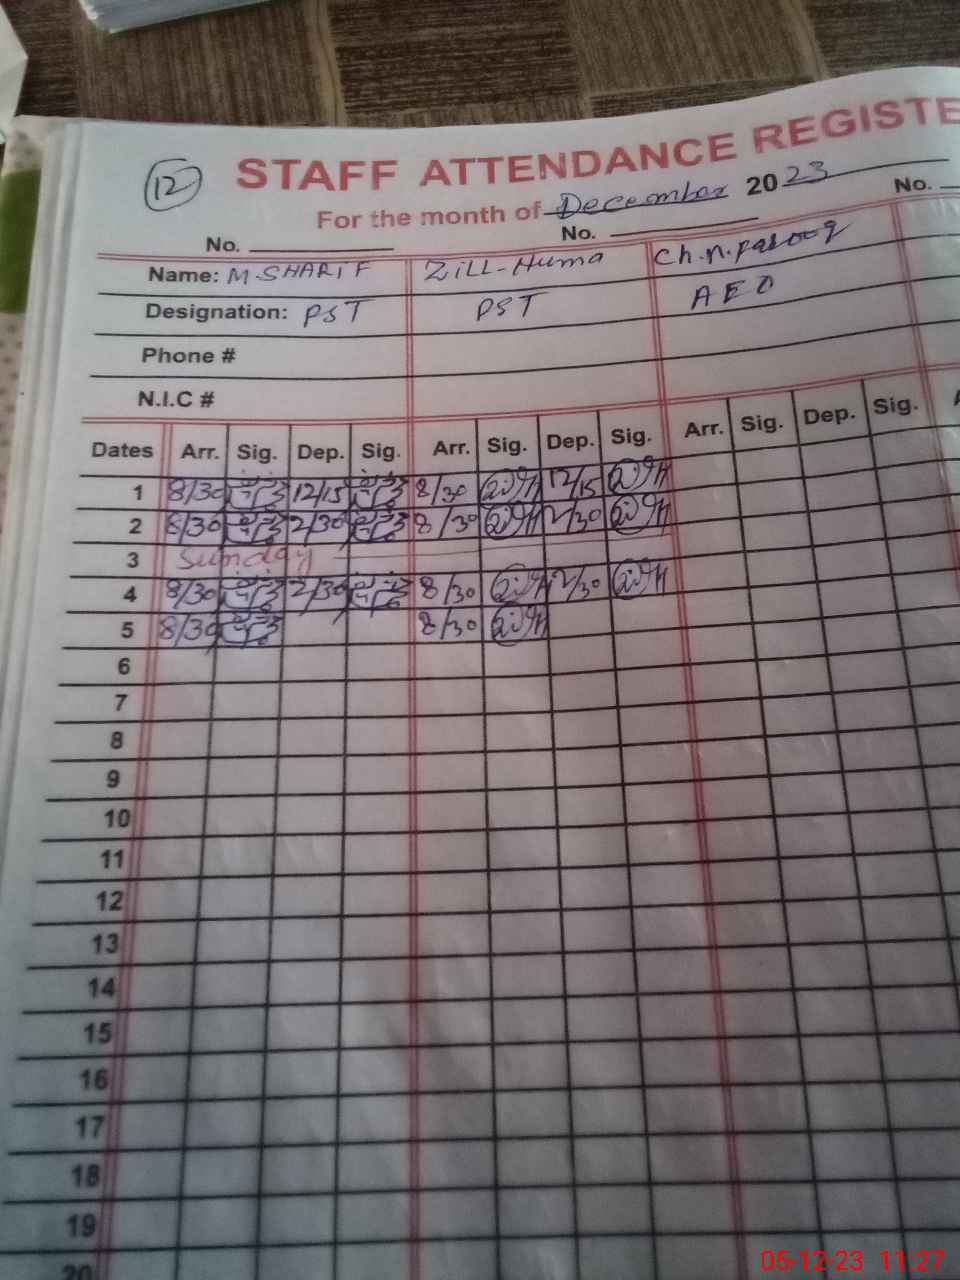 12 STAFF ATTENDANCE REGISTE
For the month of December 2023
No. No. No.
Name: M.SHARIF ZiLL-Huma Ch.M.Farooq
Designation: PST PST AEO
Phone #
N.I.C #
Dates Arr. Sig. Dep. Sig. Arr. Sig. Dep. Sig. Arr. Sig. Dep. Sig. A
1 8/30 12/15 8/30 12/15
2 8/30 2/30 8/30 2/30
3 Sunday
4 8/30 2/30 8/30 2/30
5 8/30 8/30
6
7
8
9
10
11
12
13
14
15
16
17
18
19
20
05-12-23 11:27